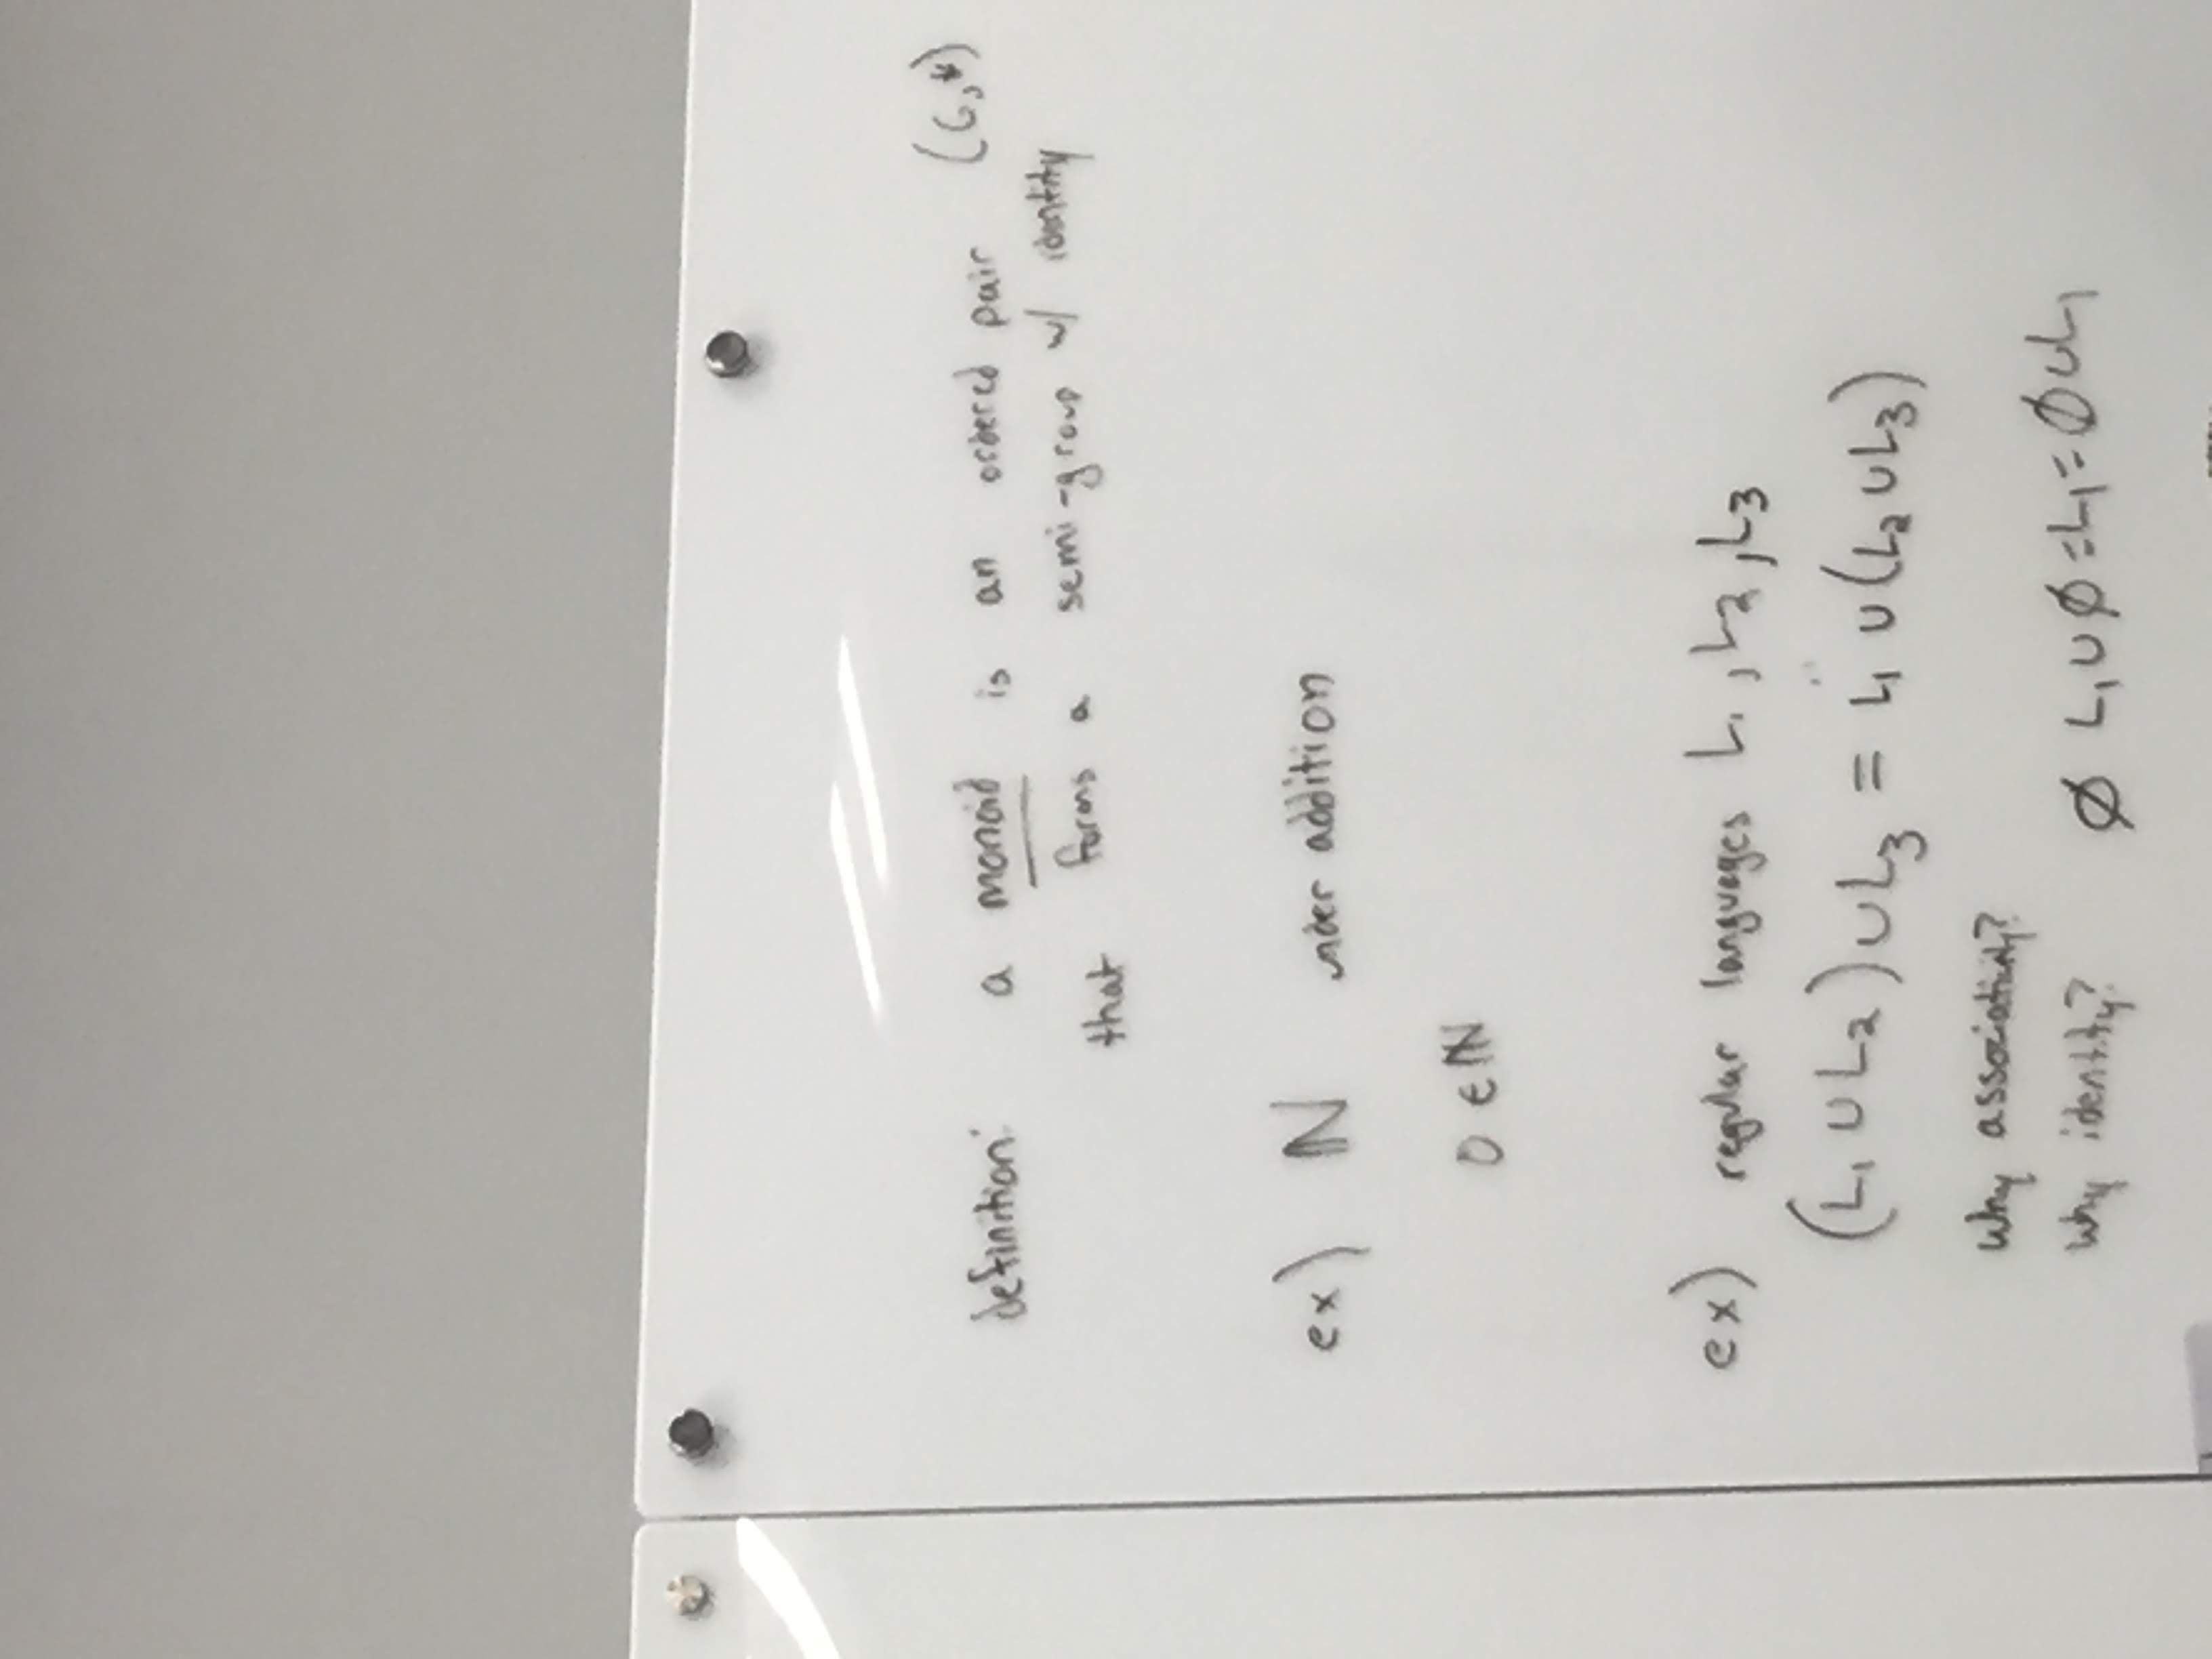 definition: a monoid is an ordered pair (G,*)
that forms a semi-group w/ identity
ex) ℕ under addition
0 ∈ ℕ
ex) regular languages L₁, L₂, L₃
(L₁ ∪ L₂) ∪ L₃ = L₁ ∪ (L₂ ∪ L₃)
why associativity?
why identity? ∅ L₁ ∪ ∅ = L₁ = ∅ ∪ L₁